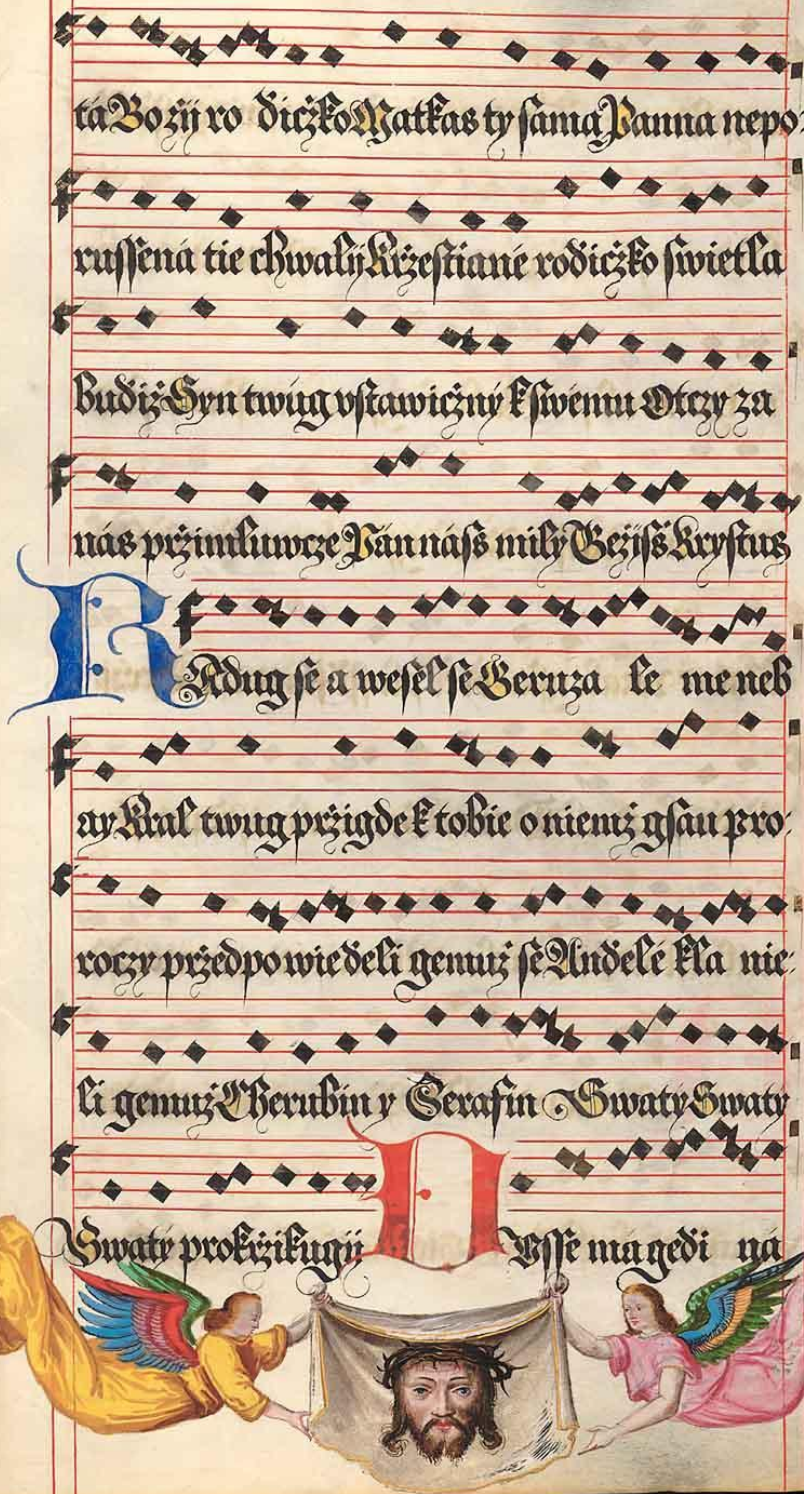 tá Božij ro dičžko Matkas ty sama Panna nepo:
russená tie chwalij Krżestiané rodičžko swietla
Budiž Syn twúg vstawičžný k swému Otczy za
nás pržimluwcze Pán náss milý Gežiss Krystus
RAdug se a wesel se Geruza le me neb
ay Kral twug pržigde k tobie o niemž gsau pro:
roczy pržedpo wiedeli gemuž se Andelé kla nie:
li gemuž Cherubin y Serafin Swatý Swatý
Swatý prokržikugij DVsse má gedi ná